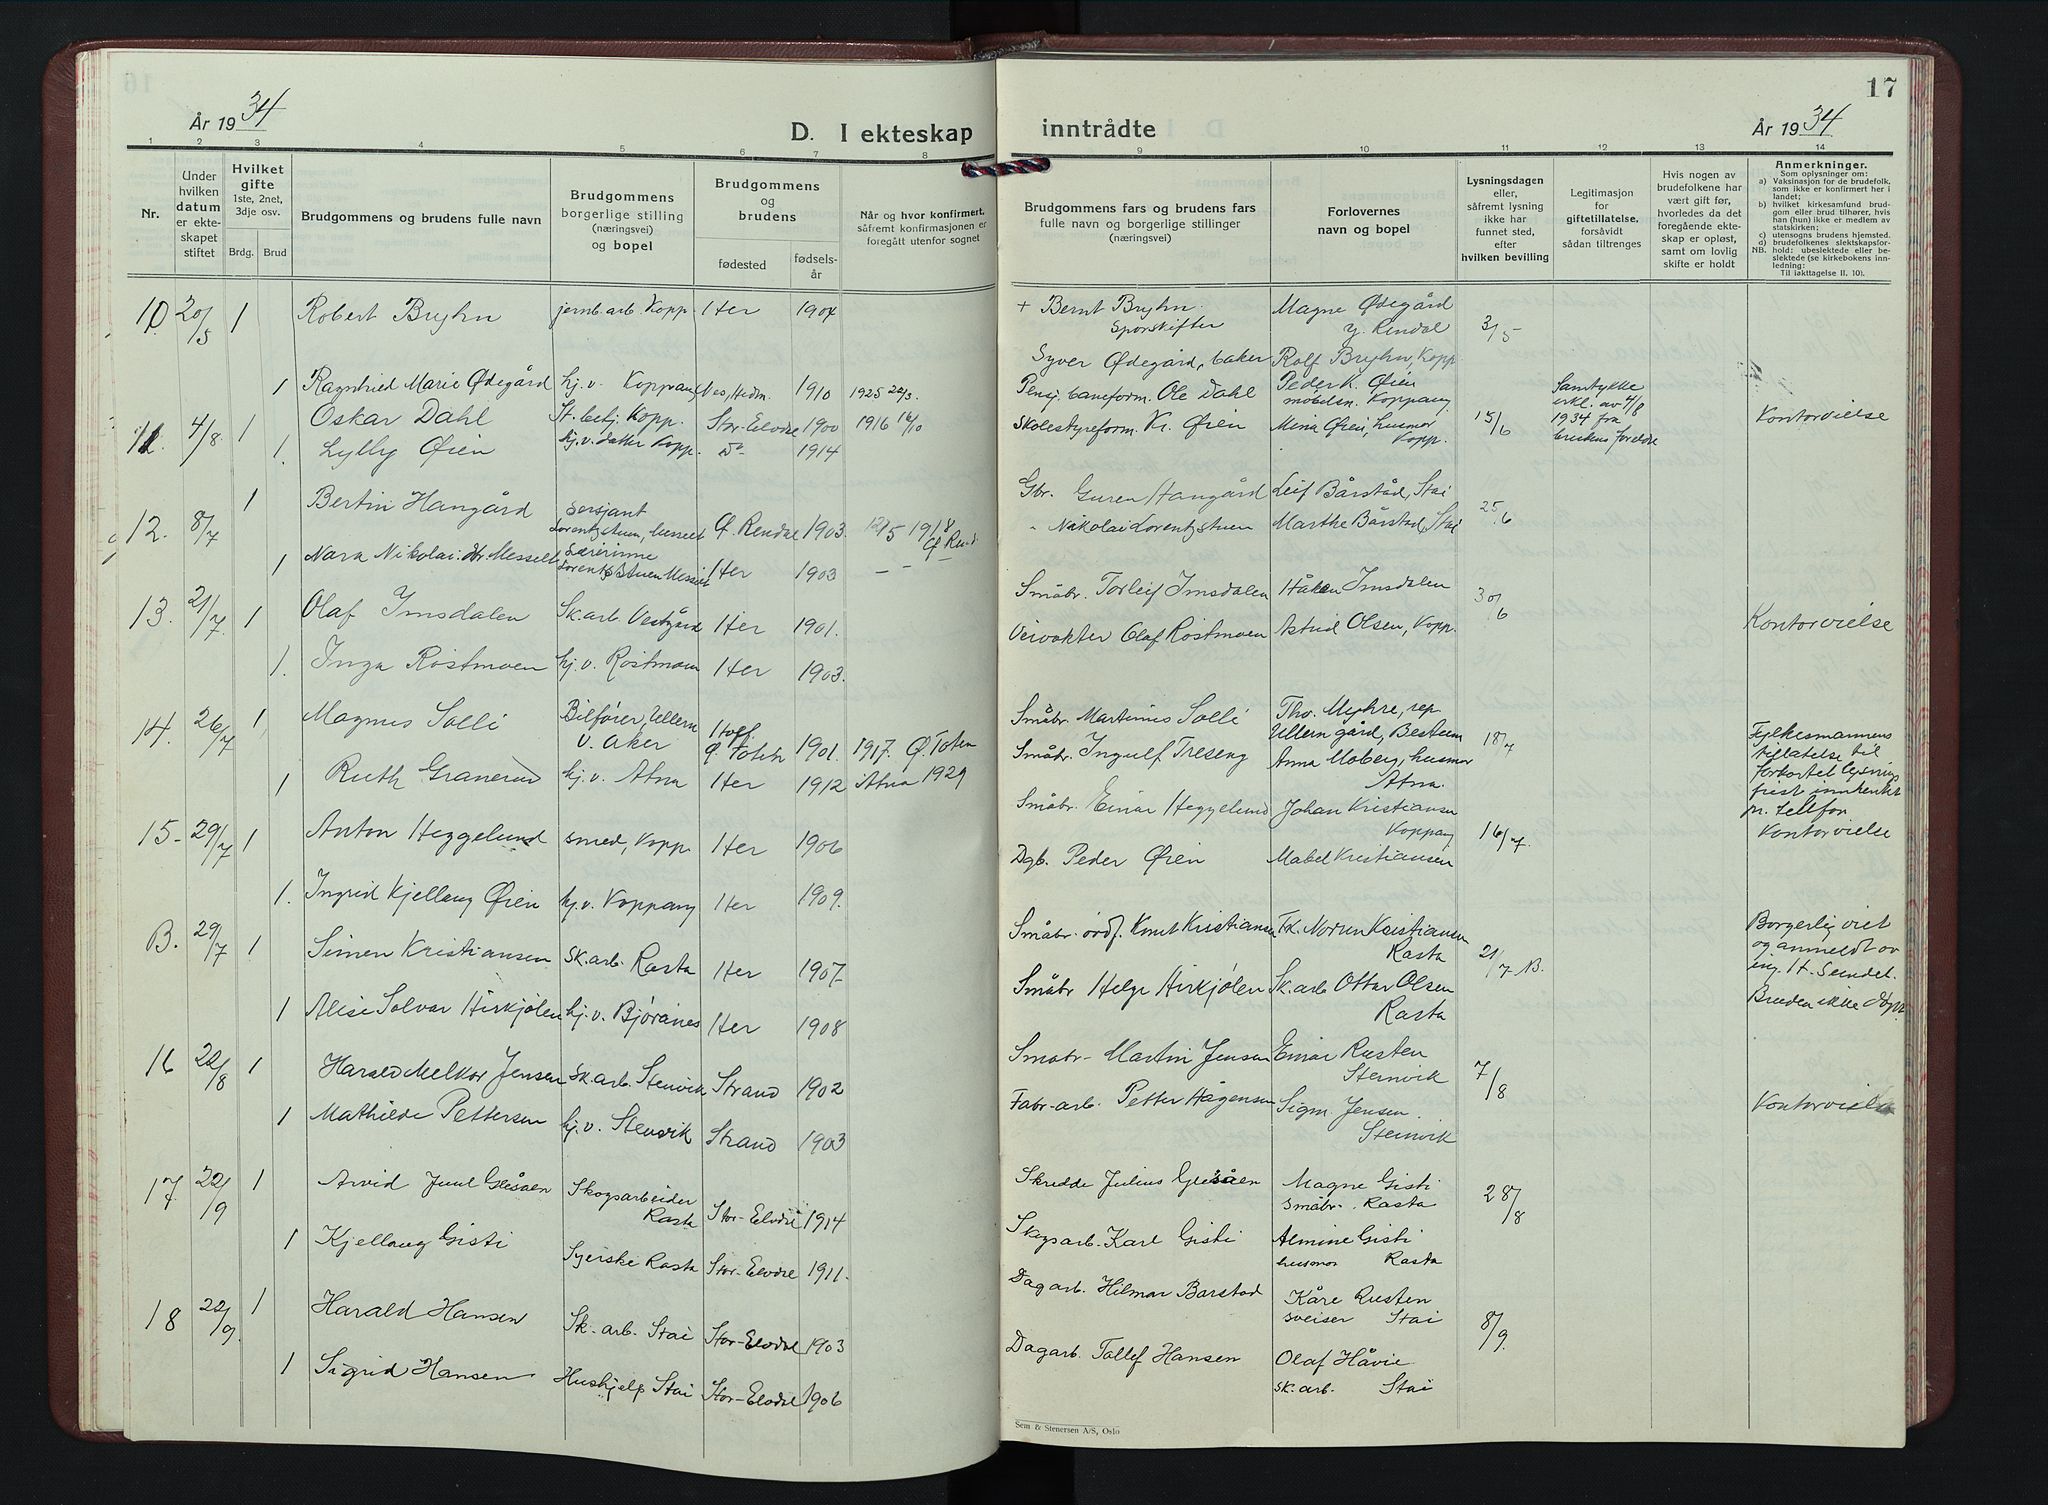 År 1934
D. I ekteskap
1 2 3 4 5 6 7 8
Nr.
Under hvilken datum er ekteskapet stiftet
Hvilket gifte 1ste, 2net, 3dje osv.
Brdg. Brud
Brudgommens og brudens fulle navn
Brudgommens borgerlige stilling (næringsvei) og bopel
Brudgommens og brudens
fødested
fødselsår
Når og hvor konfirmert, såfremt konfirmasjonen er foregått utenfor sognet
10 20/5 1 Robert Bryhn jernb.arb. Kopp. Her 1904
1 Ragnhild Marie Ødegård hj.v. Koppang Nes, Hedm. 1910 1925
11. 4/8 1 Oskar Dahl St.betj. Kopp. Stor-Elvdal 1900 1916 16/10
1. Lylly Øien hj.v. datter Kopp. Do 1914
12. 8/7 1 Bertin Hangård sersjant Lorentzstuen, Messelt Ø. Rendal 1903. 12/5 1918 Ø. Rend.
1 Nara Nikolai.dtr. Messelt Lærerinne Lorentzstuen Messelt Her 1903 – – –
13. 21/7 1 Olaf Imsdalen Sk.arb. Vestgård Her 1901.
1. Inga Röstmoen hj.v. Röstmoen Her 1903.
14. 26/7 1 Magnus Solli Bilfører, Ullern v. Aker Hoff Ø. Toten 1901. 1917. Ø Toten
1 Ruth Granerud hj.v. Atna Her 1912 Atna 1929
15- 29/7 1 Anton Heggelund smed, Kopp. Her 1906
1. Ingrid Kjellaug Øien hj.v. Koppang Her 1909.
B. 29/7 1 Simen Kristiansen sk.arb. Rasta Her 1907.
1 Alise Solvor Hirkjølen hj.v. Bjøranes Her 1908
16 22/8 1 Harald Melkor Jensen sk.arb. Stenvik Strand 1902
1 Mathilde Pettersen hj.v. Stenvik Strand 1903
17 22/9 1 Arvid Juul Glesåen Skogsarbeider Rasta Stor-Elvdal 1914
1 Kjellaug Gisti Syerske Rasta Stor-Elvdal 1911.
18 22/9. 1 Harald Hansen Sk.arb. Stai Stor-Elvdal 1903
1 Sigrid Hansen Hushjelp Stai Stor-Elvdal 1906
17
inntrådte
År 1934
9 10 11 12 13 14
Brudgommens fars og brudens fars fulle navn og borgerlige stillinger (næringsvei)
Forlovernes navn og bopel
Lysningsdagen eller, såfremt lysning ikke har funnet sted, efter hvilken bevilling
Legitimasjon for giftetillatelse, forsåvidt sådan tiltrenges
Hvis nogen av brudefolkene har vært gift før, hvorledes da det foregående ekteskap er opløst, samt om lovlig skifte er holdt
Anmerkninger.
Som oplysninger om:
a) Vaksinasjon for de brudefolk, som ikke er konfirmert her i landet;
b) hvilket kirkesamfund brudgom eller brud tilhører, hvis han (hun) ikke er medlem av statskirken;
c) utensogns brudens hjemsted.
d) brudefolkenes slektskapsforhold: ubeslektede eller beslektede (se kirkebokens innledning:
NB. Til iakttagelse II. 10).
+ Bernt Bryhn. Sporskifter Magne Ødegård Y. Rendal 3/5
Syver Ødegård, baker Rolf Bryhn, Kopp.
Pensj. baneform. Ole Dahl Peder K. Øien møbelsn. Koppang 15/6 Samtykke erkl. av 4/8 1934 fra brudens foreldre Kontorvielse
Skolestyreform. Kr. Øien Mina Øien, husmor Kopp.
Gbr. Guren Hangård Leif Bårstad, Stai 25/6
" Nikolai Lorentzstuen Marthe Bårstad, Stai
Småbr. Torleif Imsdalen Håken Imsdalen 30/6 Kontorvielse
Veivokter Olaf Röstmoen Astrid Olsen, Kopp.
Småbr. Martinus Solli Thv. Myhre, rep. Ullern gård, Bestum 18/7 Fylkesmannens tillatelse til forkortet lysningsfrist innhentet pr. telefon
Småbr. Ingulf Treseng Anna Moberg, husmor Atna.
Småbr. Einar Heggelund Johan Kristiansen Koppang 16/7. Kontorvielse
Dgb. Peder Øien Mabel Kristiansen
Småbr. ordf. Knut Kristiansen Norun Kristiansen Rasta 21/7 B. Borgerlig viet og anmeldt av ing. H. Sundet. Bruden ikke døpt.
Småbr Helge Hirkjølen Sk.arb Ottar Olsen Rasta
Småbr- Martin Jensen Einar Rusten Stenvik 7/8 Kontorvielse
Fabr-arb. Petter Hågensen Sigm. Jensen. Stenvik
Skredde Julius Glesåen Magne Gisti småbr.. Rasta 28/8
Skogsarb. Karl Gisti Almine Gisti husmor Rasta
Dagarb. Hilmar Barstad Kåre Rusten sveiser Stai 8/9.
Dagarb. Tollef Hansen Olaf Håvie sk.arb. Stai
Sem & Stenersen A/S, Oslo